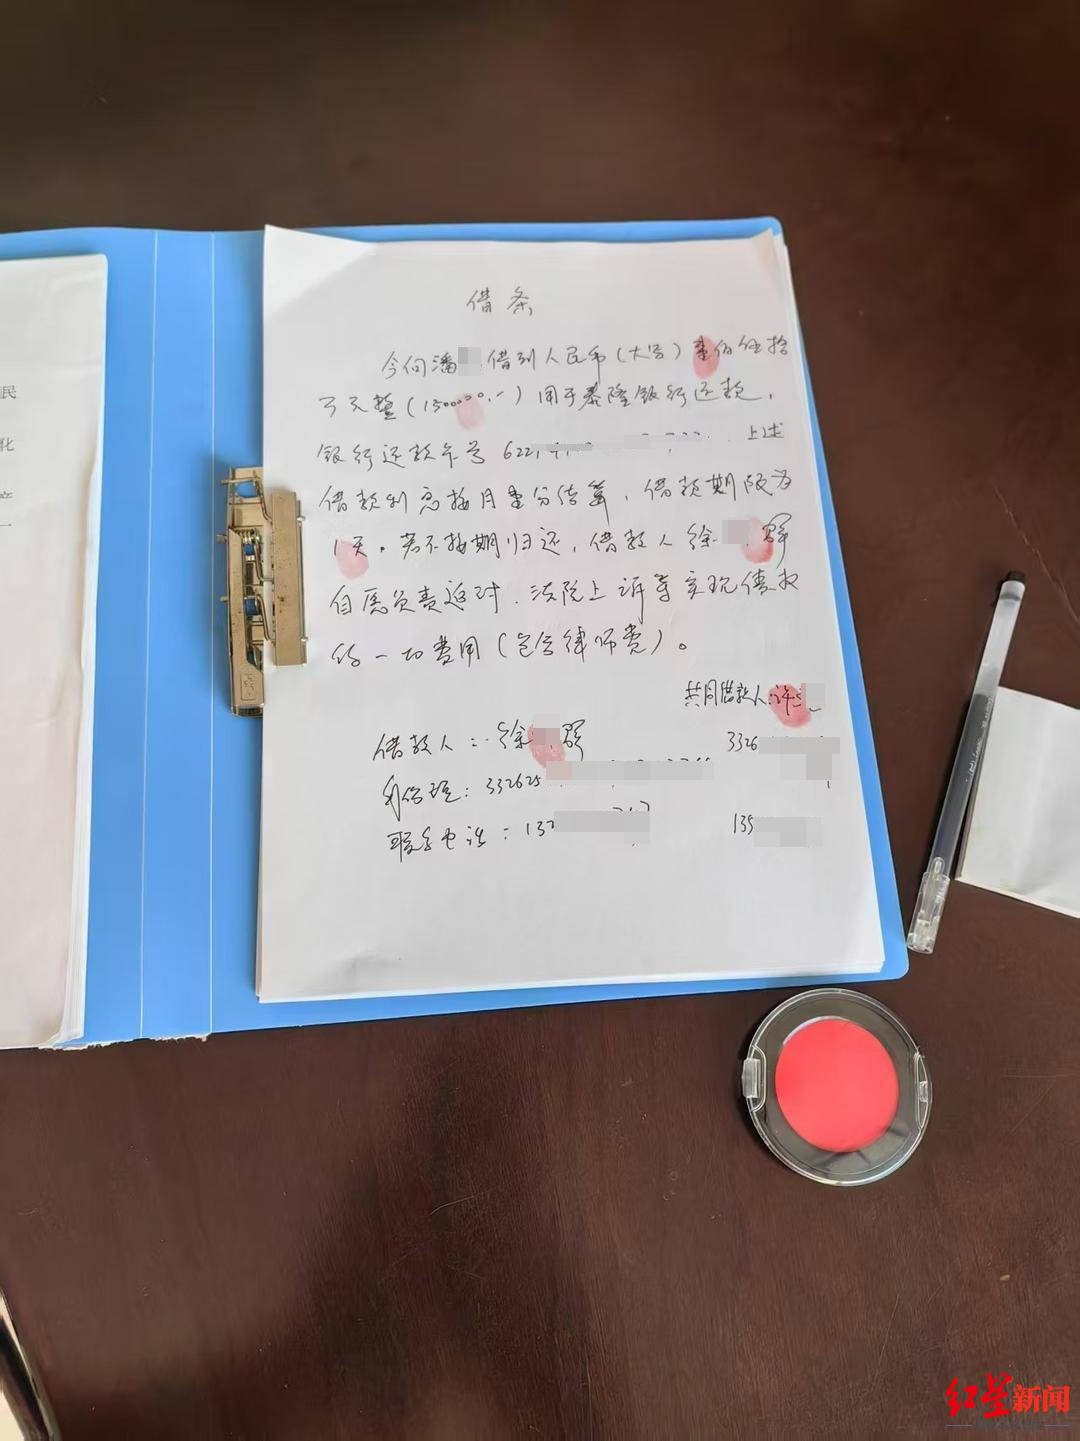 民
化
产
一
借条
今向潘 借到人民币(大写)壹佰伍拾
万元整(1500000.-)用于泰隆银行还款,
银行还款卡号 622 上述
借款利息按月壹分结算,借款期限为
1天。若不按期归还,借款人徐 群
自愿负责返还,法院上诉等实现债权
的一切费用(包含律师费)。
共同借款人:许
借款人:徐 群
3326
身份证:332625
联系电话:132
135
红星新闻